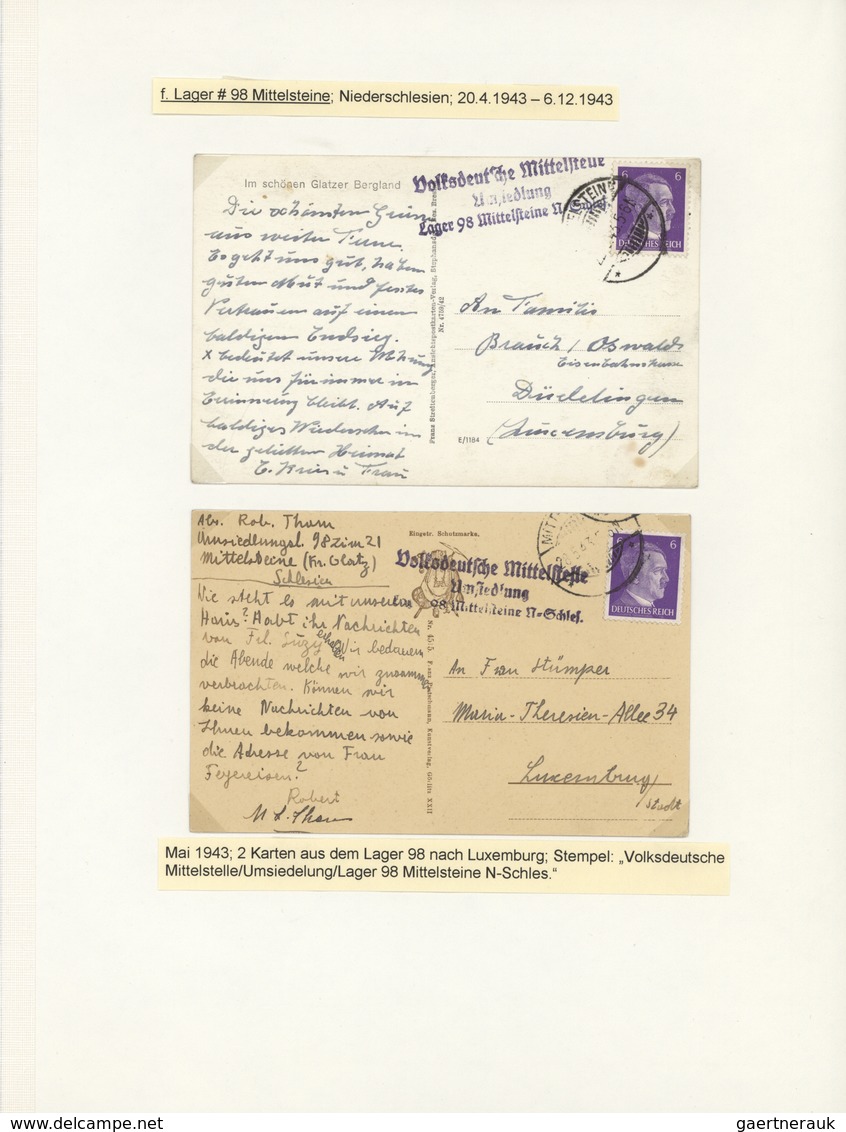 f. Lager # 98 Mittelsteine; Niederschlesien; 20.4.1943 – 6.12.1943
Im schönen Glatzer Bergland
Volksdeutsche Mittelstelle
Umsiedlung
Lager 98 Mittelsteine N-Schles.
6 6
DEUTSCHES REICH
Die schönsten Grüsse
aus weiter Ferne.
Es geht uns gut, haben
guten Mut und festes
Vertrauen auf einen
baldigen Endsieg.
X bedeutet unsere Wohnung
die uns für immer in
Erinnerung bleibt. Auf
baldiges Wiedersehen in
der geliebten Heimat
E. Kries u Frau
Nr. 4759/42
E/1184
An Familie
Brauch / Oswald
Eisenbahnstrasse
Düdelingen
(Luxemburg)
Abs. Rob. Thom
Umsiedlungsl. 98 Zim 21
Mittelsteine (Kr. Glatz)
Schlesien
Eingetr. Schutzmarke.
Volksdeutsche Mittelstelle
Umsiedlung
98 Mittelsteine N-Schles.
6 6
DEUTSCHES REICH
Wie steht es mit unserem
Haus? Habt ihr Nachrichten
von Frl. Suzy erhalten Wir bedauern
die Abende welche wir zusammen
verbrachten. Können wir
keine Nachrichten von
Ihnen bekommen sowie
die Adresse von Frau
Feyereisen?
Robert
Nr. 4515. Kunstverlag, Görlitz XXII
An Frau Stümper
Maria-Theresien-Allee 34
Luxemburg
Stadt
Mai 1943; 2 Karten aus dem Lager 98 nach Luxemburg; Stempel: „Volksdeutsche
Mittelstelle/Umsiedelung/Lager 98 Mittelsteine N-Schles.“
gaertnerauk